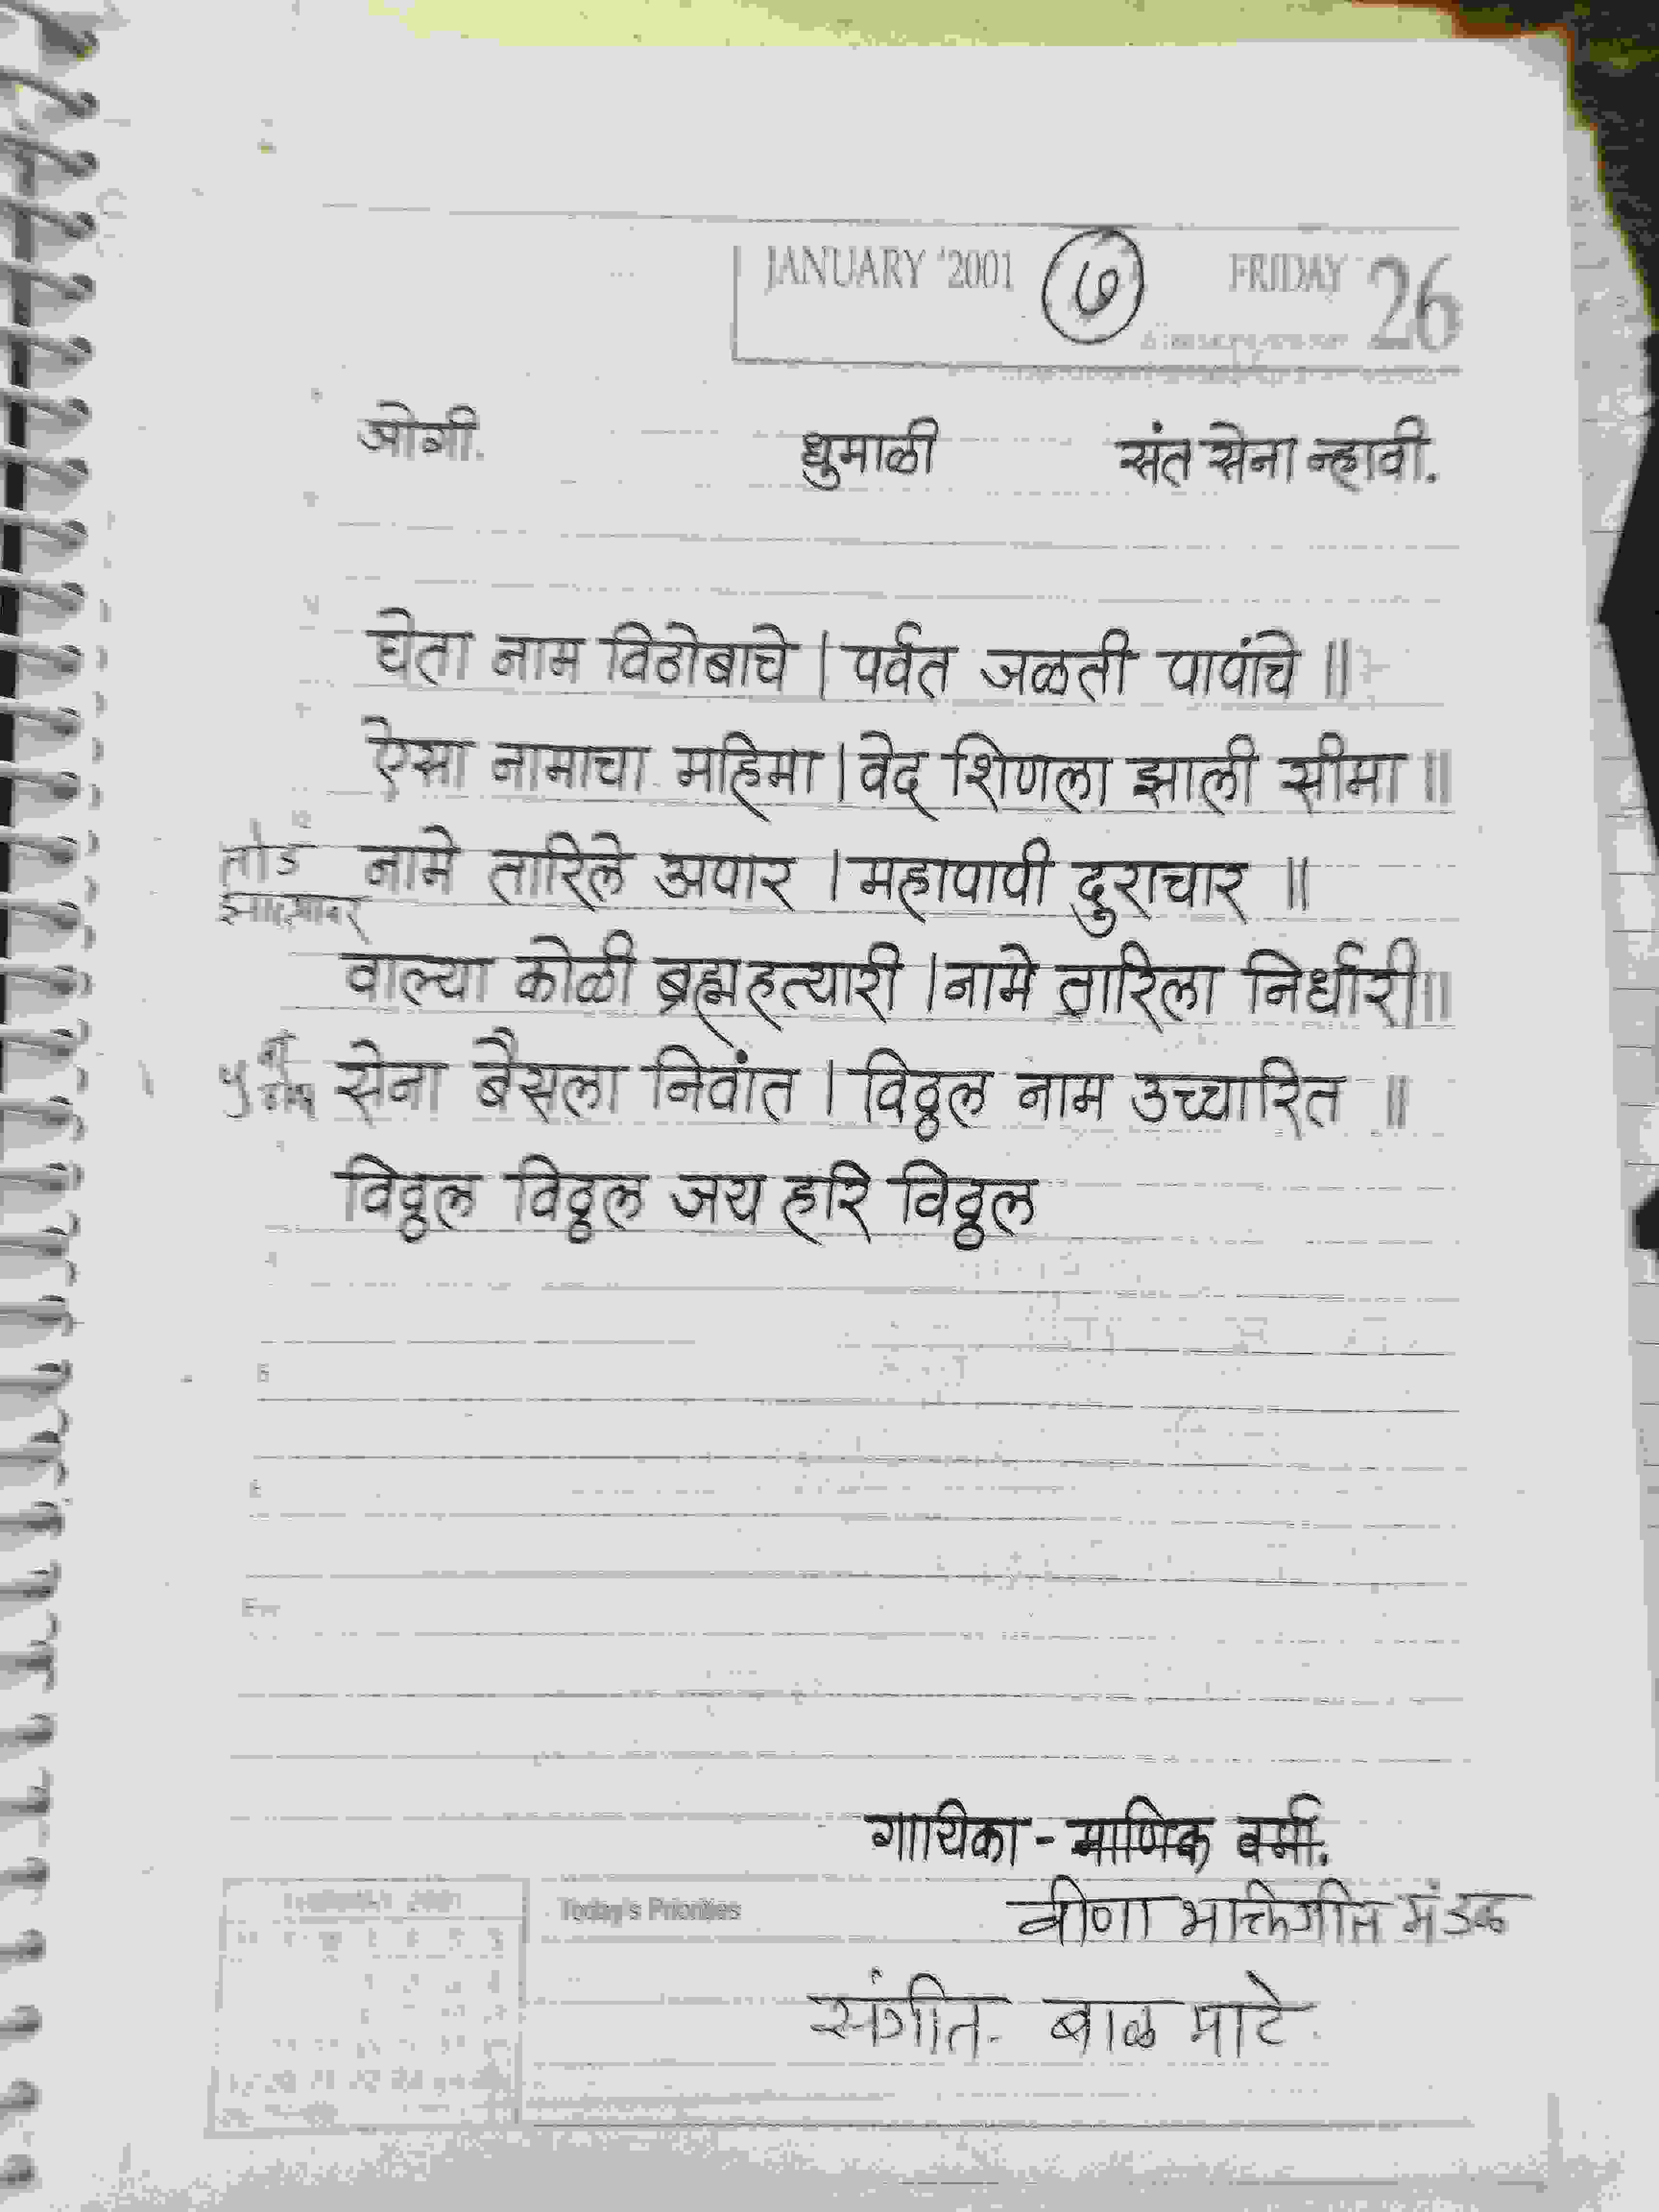 JANUARY '2001 ७ FRIDAY 26
जोगी. धुमाळी संत सेना न्हावी.
घेता नाम विठोबाचे । पर्वत जळती पापांचे ॥
ऐसा नामाचा महिमा । वेद शिणला झाली सीमा ॥
तोड नामे तारिले अपार । महापापी दुराचार ॥
वाल्या कोळी ब्रह्महत्यारी । नामे तारिला निर्धारी ॥
सेना बैसला निवांत । विठ्ठल नाम उच्चारित ॥
विठ्ठल विठ्ठल जय हरि विठ्ठल
गायिका - माणिक वर्मा.
वीणा भक्तिगीत मंडळ
Today's Priorities
संगीत - बाळ माटे